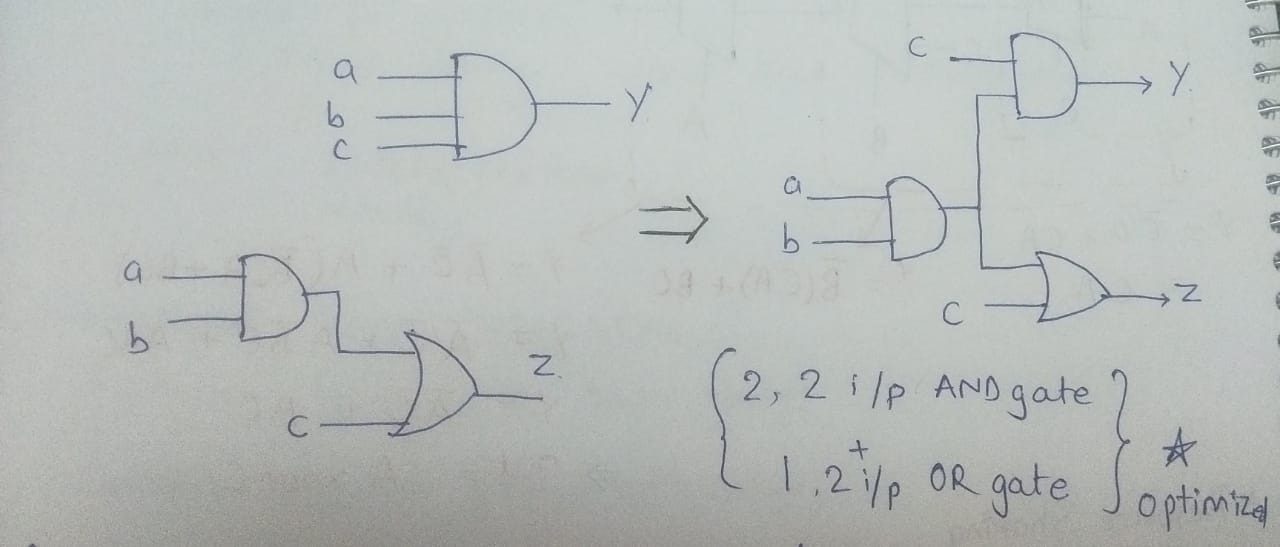 a
b
c
Y
a
b
c
Z.
⇒
c
Y.
a
b
c
Z
2, 2 i/p AND gate
+
1, 2 i/p OR gate
☆
optimized